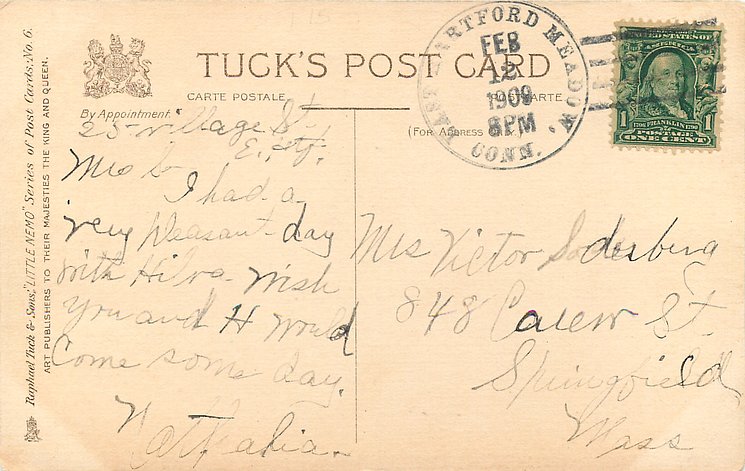 Raphael Tuck & Sons' "LITTLE NEMO" Series of Post Cards. No. 6.
ART PUBLISHERS TO THEIR MAJESTIES THE KING AND QUEEN.
By Appointment.
TUCK'S POST CARD
CARTE POSTALE
POSTKARTE
(For Address
EAST HARTFORD MEADOW.
CONN.
FEB
12
1909
8 PM
UNITED STATES OF
AMERICA
1706 FRANKLIN 1790
1 POSTAGE 1
ONE CENT
25 Village St.
E. Htf.
Mrs S.
I had a
very pleasant day
with Hilva. Wish
you and H would
come some day.
Nathalia.
Mrs Victor Soderberg
848 Carew St.
Springfield
Mass